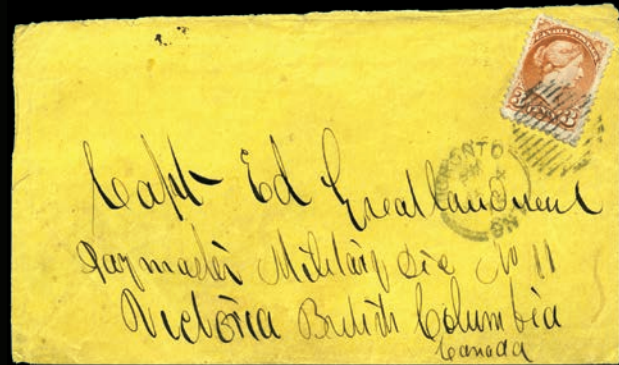 CANADA POSTAGE
3 CENTS 3
TORONTO
Capt Ed
Paymaster Military Dis No 11
Victoria British Columbia
Canada